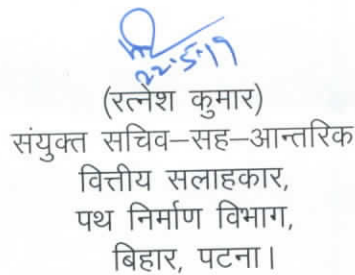 22.5.19
(रत्नेश कुमार)
संयुक्त सचिव–सह–आन्तरिक
वित्तीय सलाहकार,
पथ निर्माण विभाग,
बिहार, पटना।